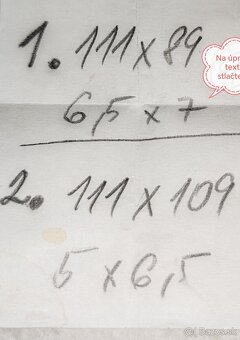 1. 111 x 89
Na úpr
text
stlačte
6,5 x 7
2. 111 x 109
5 x 6,5